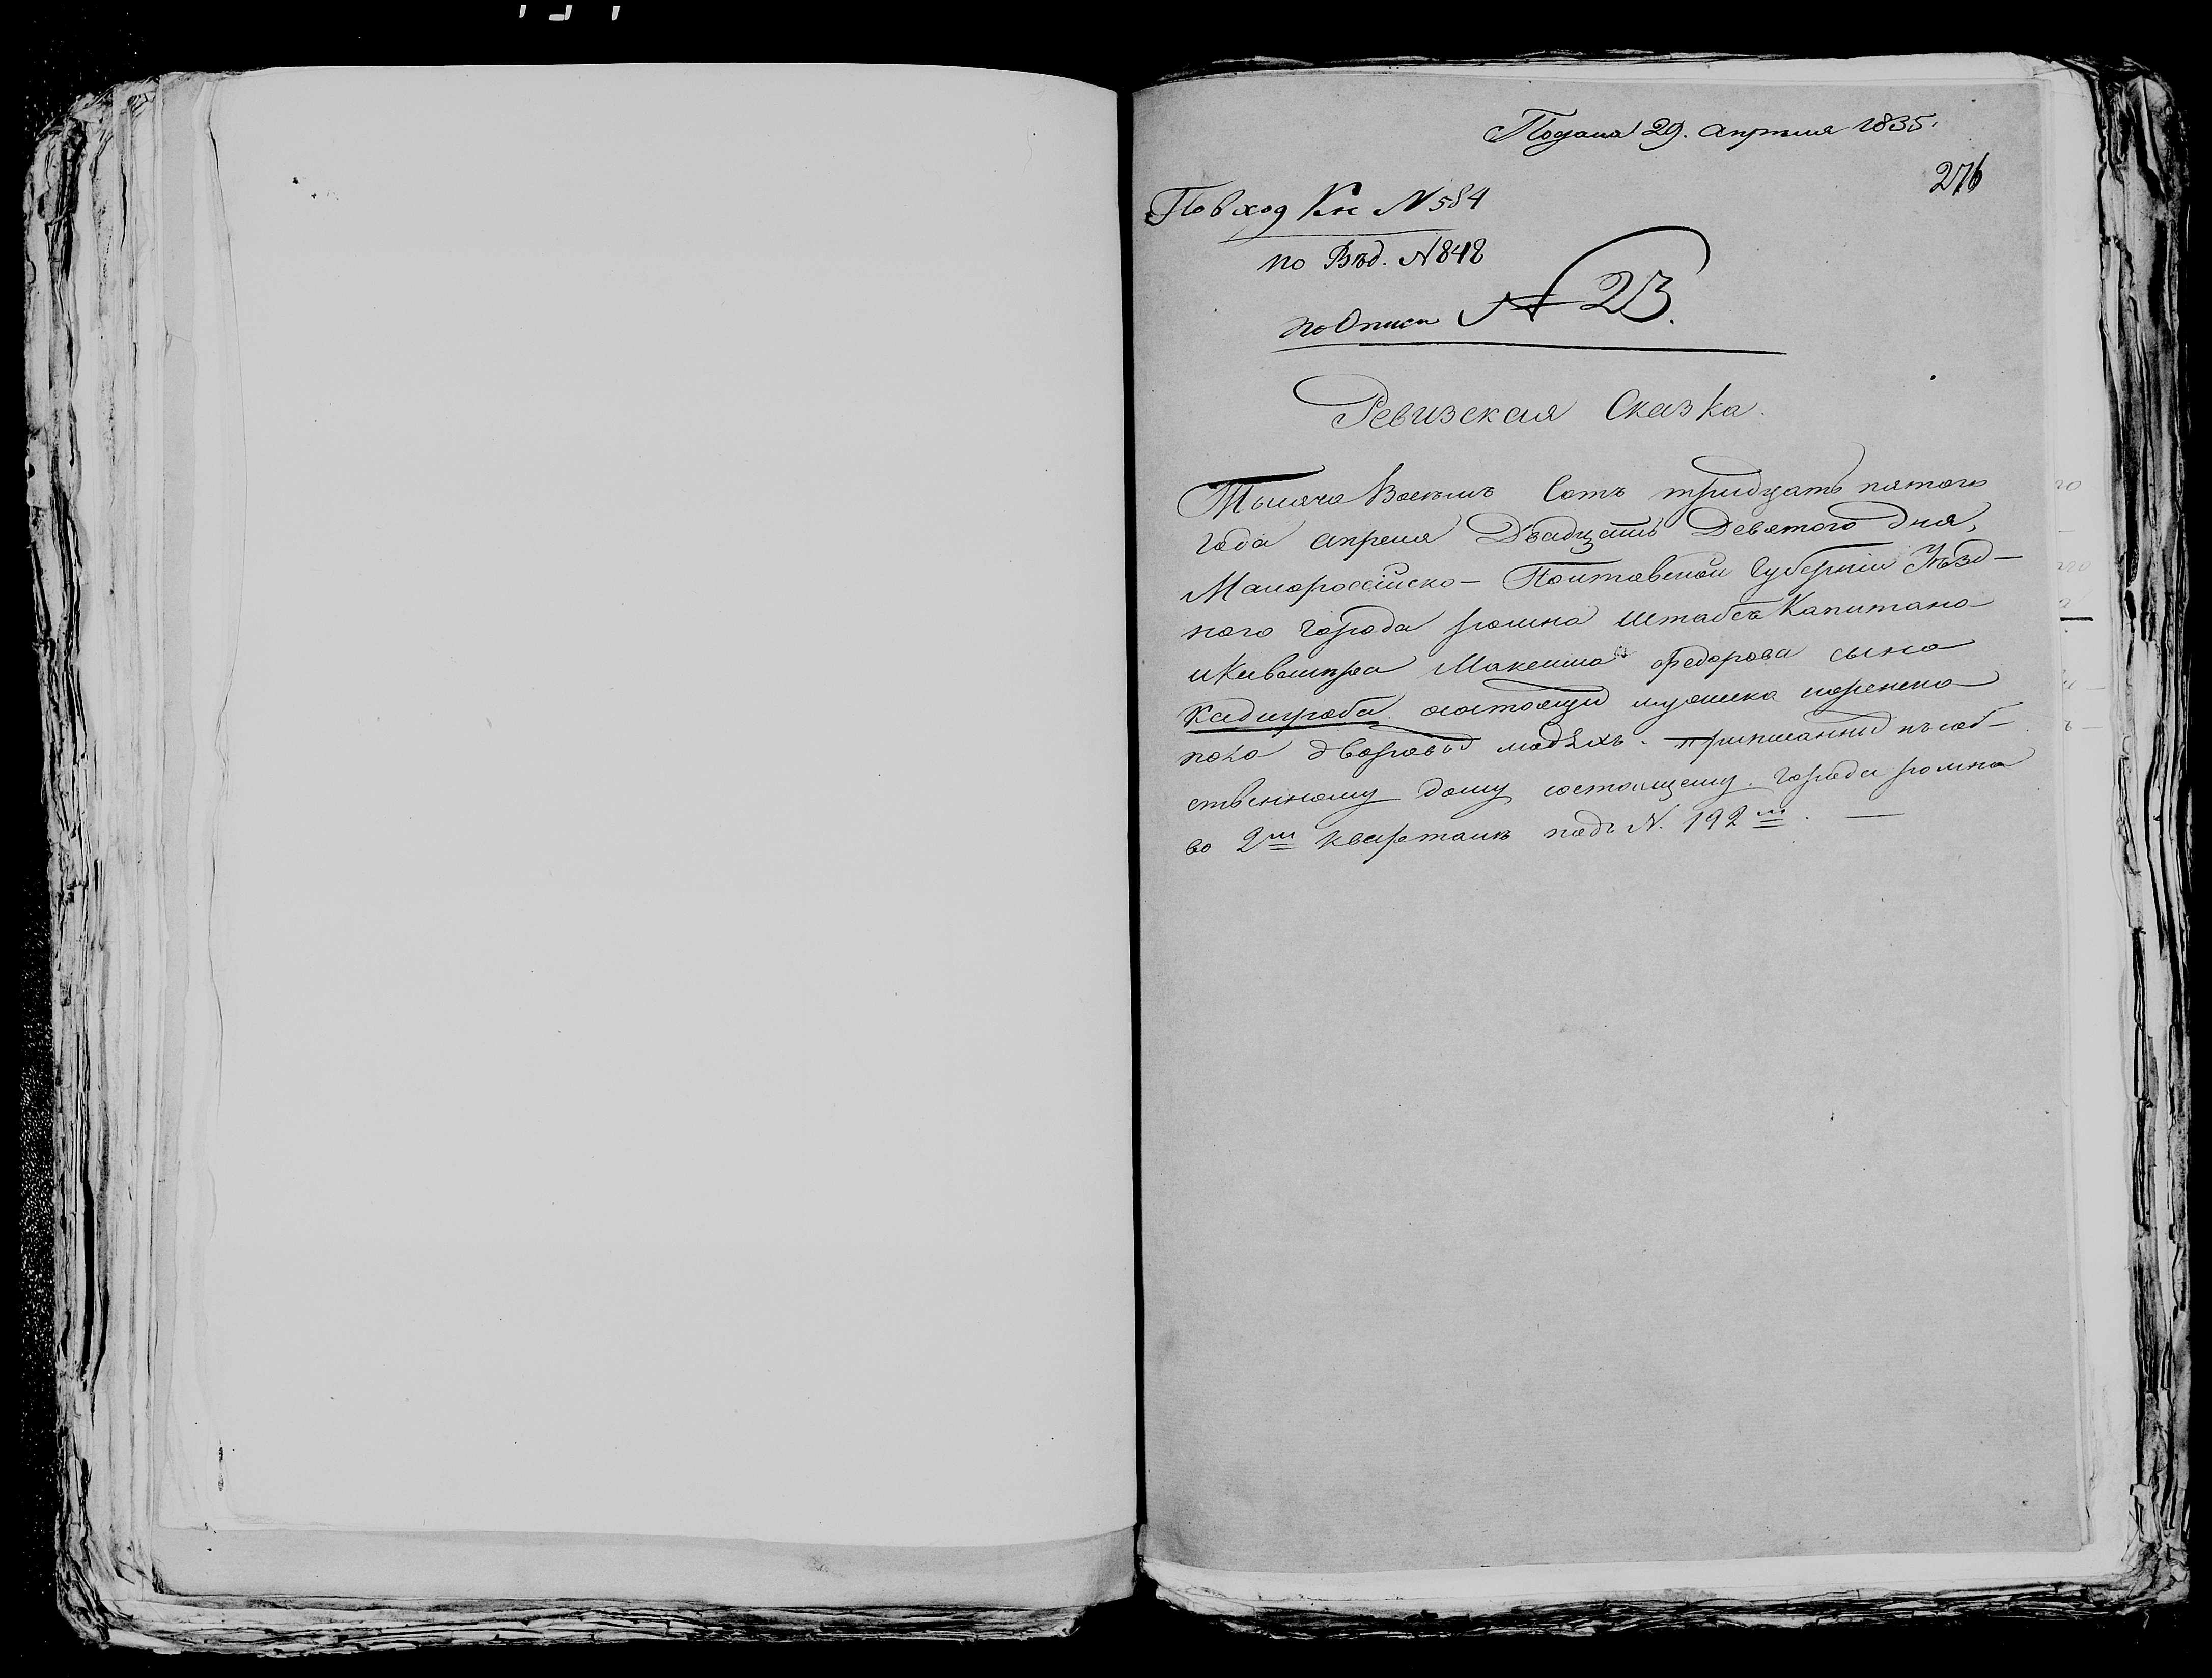 Подана 29. апреля 1835.
276
По вход Кн N 584
по Вѣд. N 848
по Описи N 23.
Ревизская Сказка.
Тысяча Восемь Сотъ тридцать пятого
года апреля Двадцать Девятого дня,
Малороссійско- Полтавской Губерніи Уѣзд-
ного города ромна Штабсъ Капитана
и Кавалера Максима федорова сына
Кадигроба состоящи мужеска
дворовыхъ людѣхъ. приписанных къ соб-
ственному дому состоящему города ромна
во 2м Квартале подъ N. 192м. —